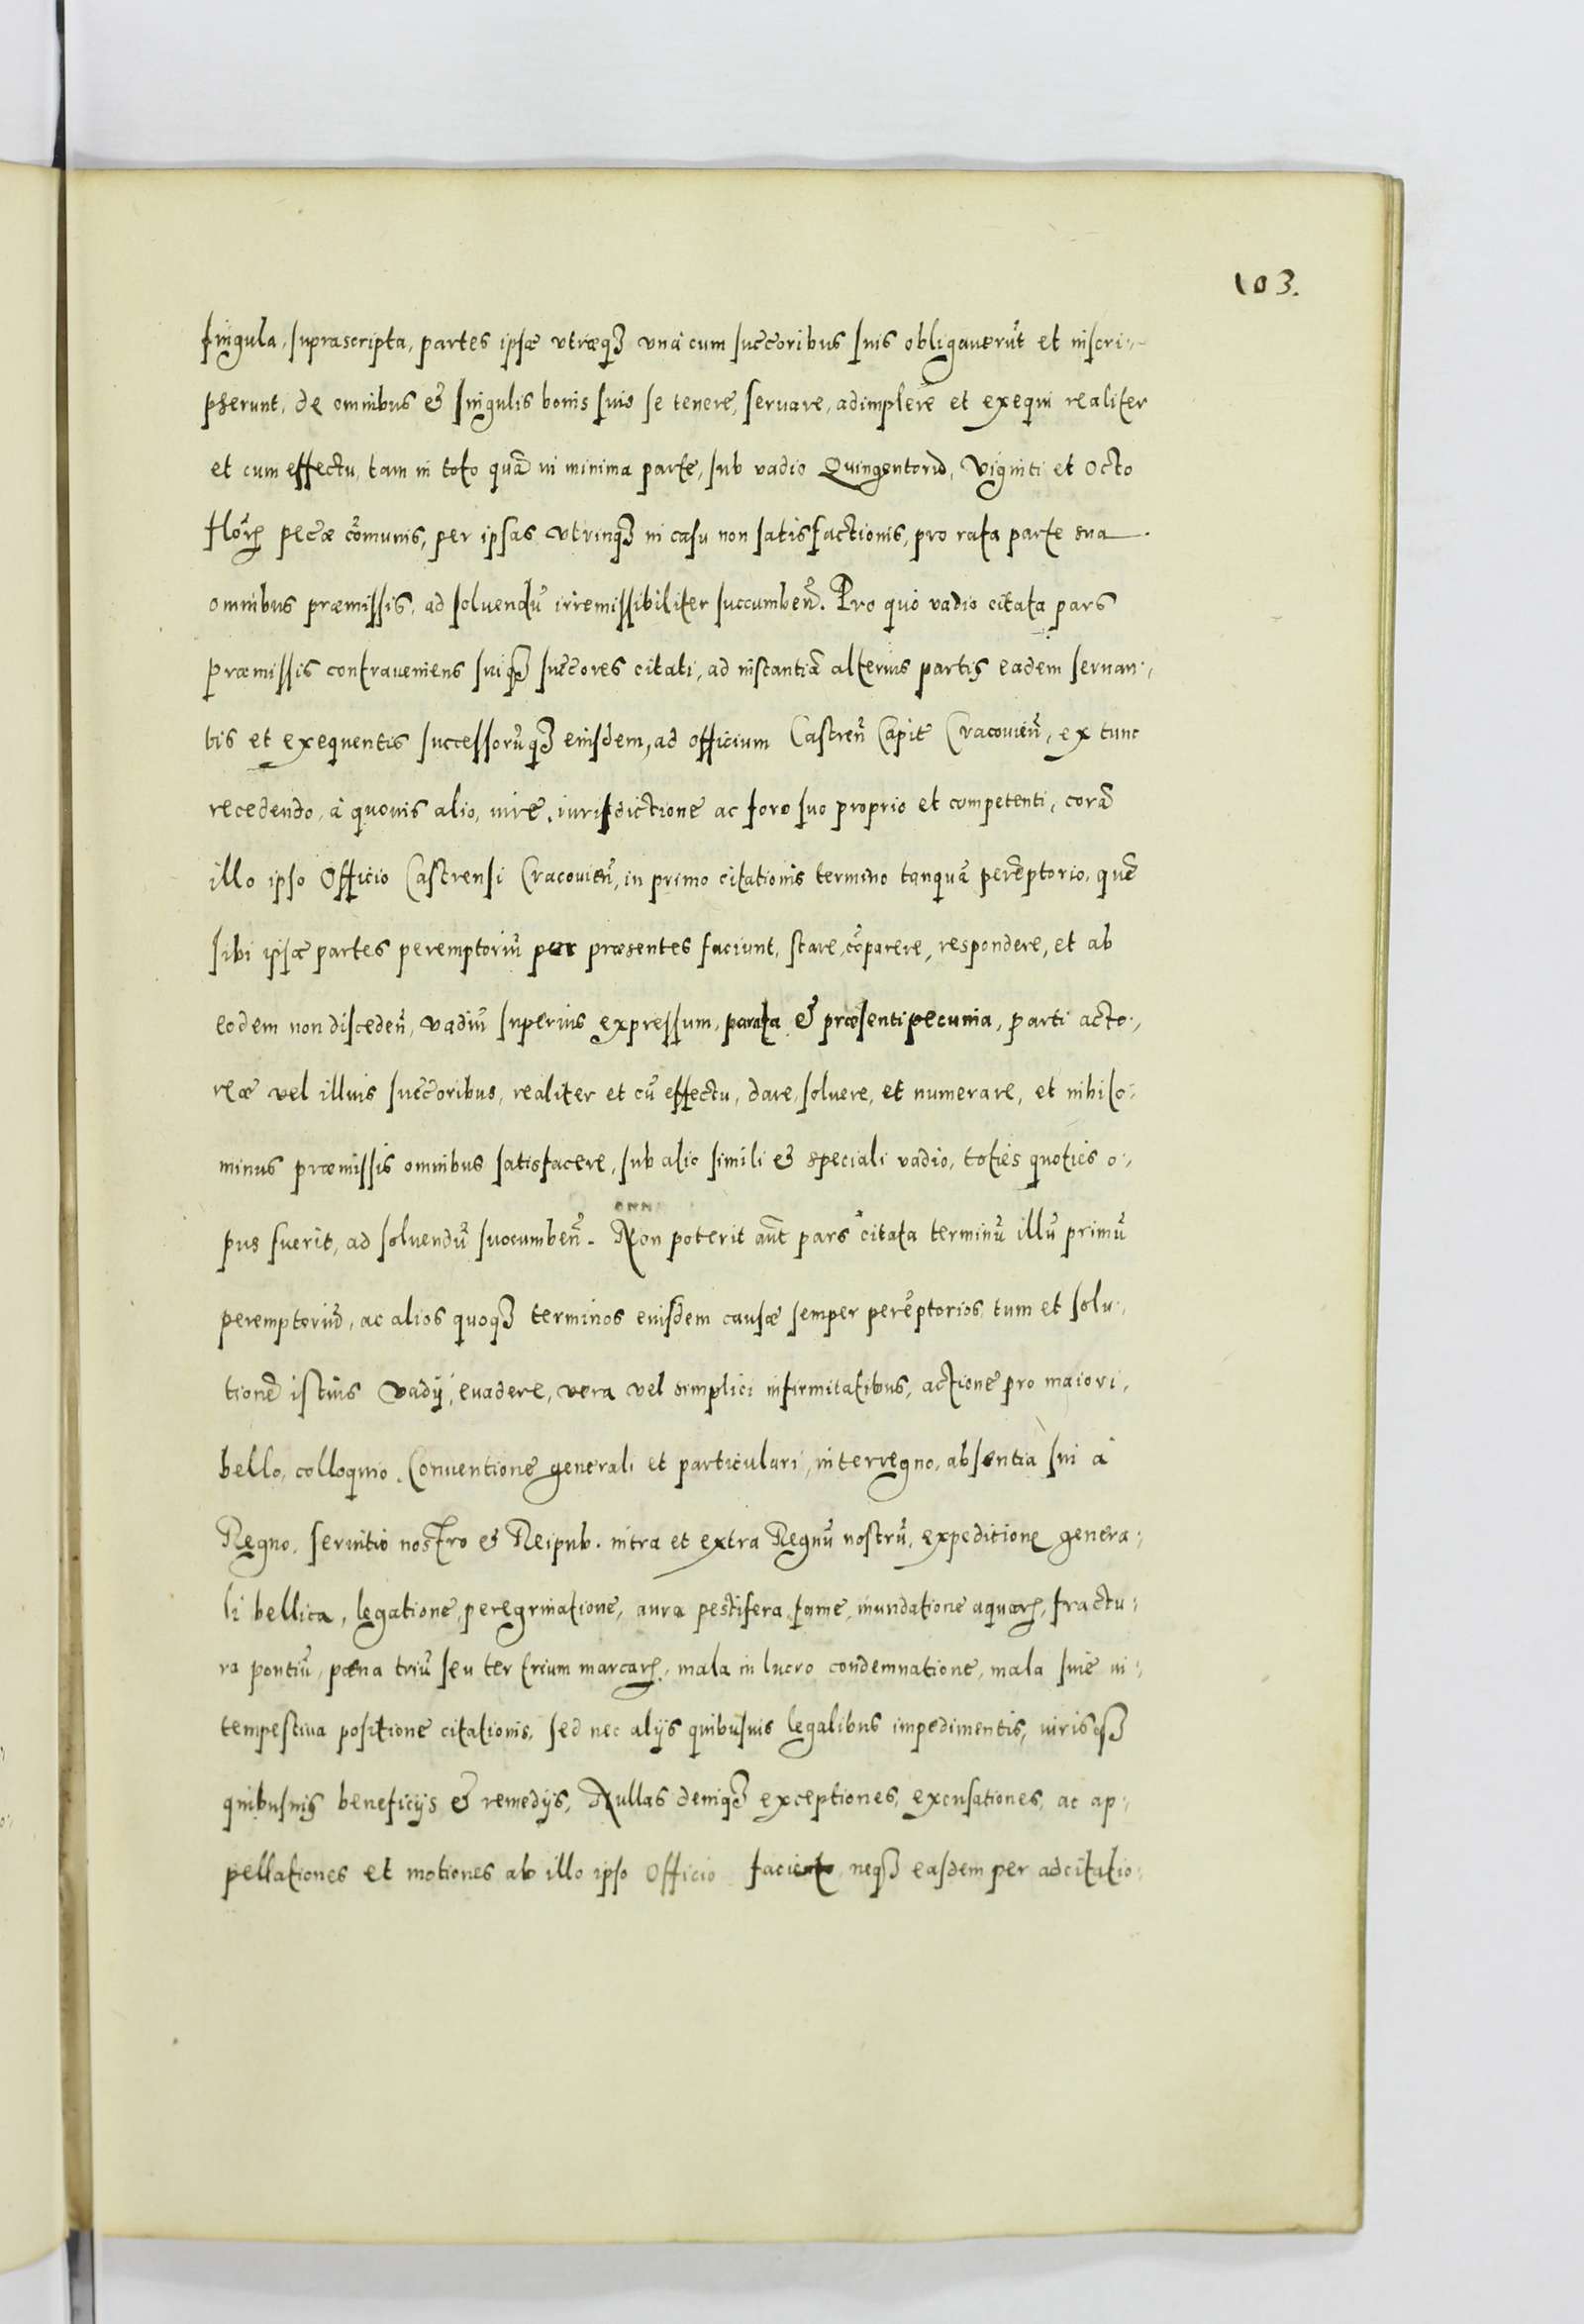 103.
singula, suprascripta, partes ipsæ vtræq3 vnà cum succoribus suis obligauerũt et inscri-
pserunt, de omnibus & singulis bonis suis se tenere, seruare, adimplere et exequi realiter
et cum effectu, tam in toto quã in minima parte, sub vadio Quingentorũ, Viginti et Octo
florꝝ pecæ cõmunis, per ipsas vtrinq3 in casu non satisfactionis, pro rata parte sua
omnibus præmissis, ad soluendũ irremissibiliter succumbeñ. Pro quo vadio citata pars
præmissis contraueniens suiq3 succores citati, ad instantiã alterius partis eadem seruan-
tis et exequentis successorũq3 eiusdem, ad officium Castreñ Capit Cracouieñ, ex tunc
recedendo, à quouis alio, iure, iurisdictione ac foro suo proprio et competenti, corã
illo ipso Officio Castrensi Cracouieñ, in primo citationis termino tanquã perẽptorio, quẽ
sibi ipsæ partes peremptoriũ per præsentes faciunt, stare, cõparere, respondere, et ab
eodem non discedeñ, vadiũ superius expressum, parata & præsenti pecunia, parti acto-
reæ vel illius succoribus, realiter et cũ effectu, dare, soluere, et numerare, et nihilo-
minus præmissis omnibus satisfacere, sub alio simili & speciali vadio, toties quoties o-
pus fuerit, ad soluendũ succumbeñ. Non poterit aũt pars citata terminũ illũ primũ
peremptoriũ, ac alios quoq3 terminos eiusdem causæ semper perẽptorios, tum et solu-
tionẽ istius Vadÿ, euadere, vera vel simplici infirmitatibus, actione pro maiori,
bello, colloquio, Conuentione generali et particulari, interregno, absentia sui à
Regno, seruitio nostro & Reipub. intra et extra Regnũ nostrũ, expeditione genera-
li bellica, legatione, peregrinatione, aura pestifera, fame, inundatione aquarꝝ, fractu-
ra pontiũ, pœna triũ seu ter trium marcarꝝ, mala in lucro condemnatione, mala siue in-
tempestiua positione citationis, sed nec alÿs quibusuis legalibus impedimentis, iurisq3
quibusuis beneficÿs & remedÿs, Nullas deniq3 exceptiones, excusationes, ac ap-
pellationes et motiones ab illo ipso Officio faciet neq3 easdem per adcitatio-